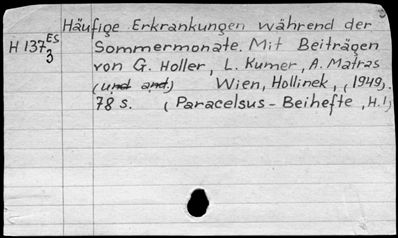 Häufige Erkrankungen während der
H 137 ES 3 Sommermonate. Mit Beiträgen
von G. Holler, L. Kumer, A. Matras
(und and.) Wien, Hollinek, (1949).
78 s. (Paracelsus-Beihefte, H.1)